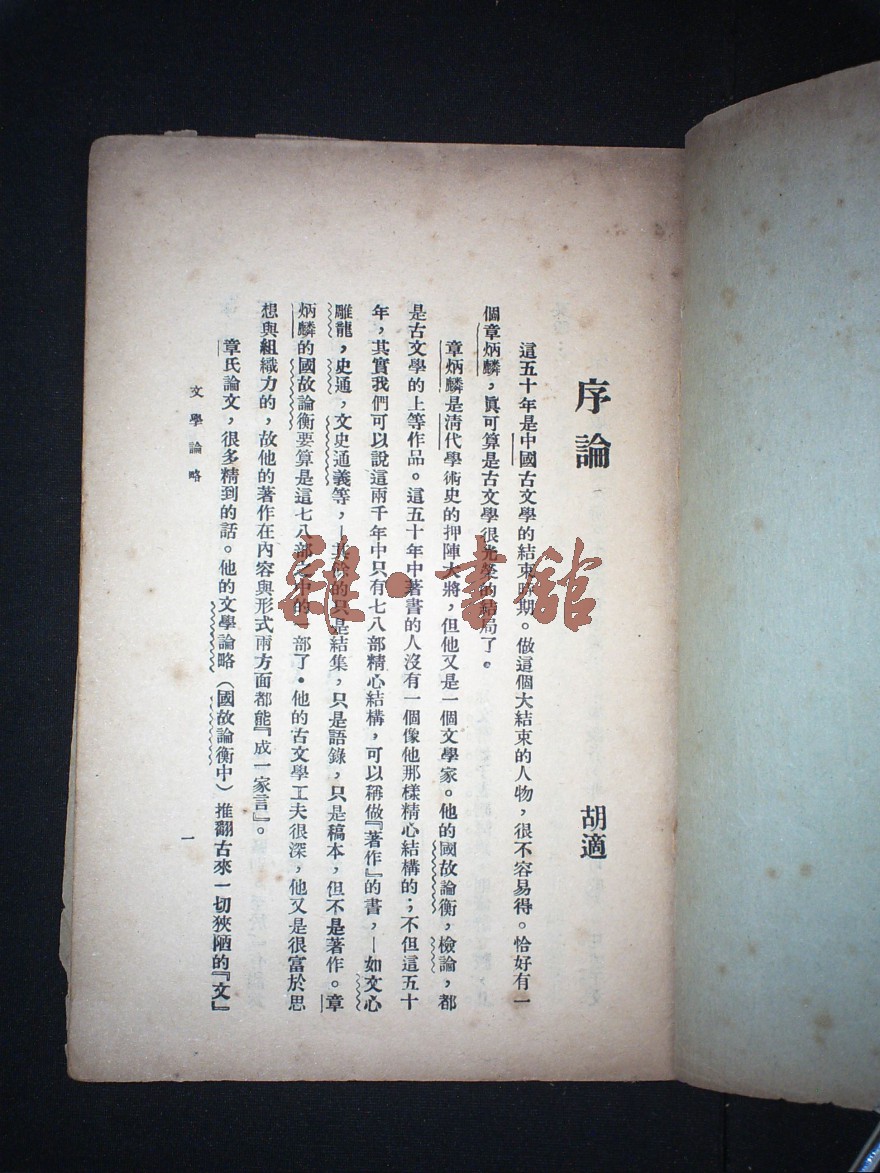 序論
胡適
這五十年是中國古文學的結束時期。做這個大結束的人物，很不容易得。恰好有一
個章炳麟，眞可算是古文學很光榮的結局了。
章炳麟是清代學術史的押陣大將，但他又是一個文學家。他的國故論衡，檢論，都
是古文學的上等作品。這五十年中著書的人沒有一個像他那樣精心結構的；不但這五十
年，其實我們可以說這兩千年中只有七八部精心結構，可以稱做『著作』的書，—如文心
雕龍，史通，文史通義等，—其餘的只是結集，只是語錄，只是稿本，但不是著作。章
炳麟的國故論衡要算是這七八部之中的一部了。他的古文學工夫很深，他又是很富於思
想與組織力的，故他的著作在內容與形式兩方面都能『成一家言』。
章氏論文，很多精到的話。他的文學論略（國故論衡中）推翻古來一切狹陋的『文』
文學論略
一
雜·書館